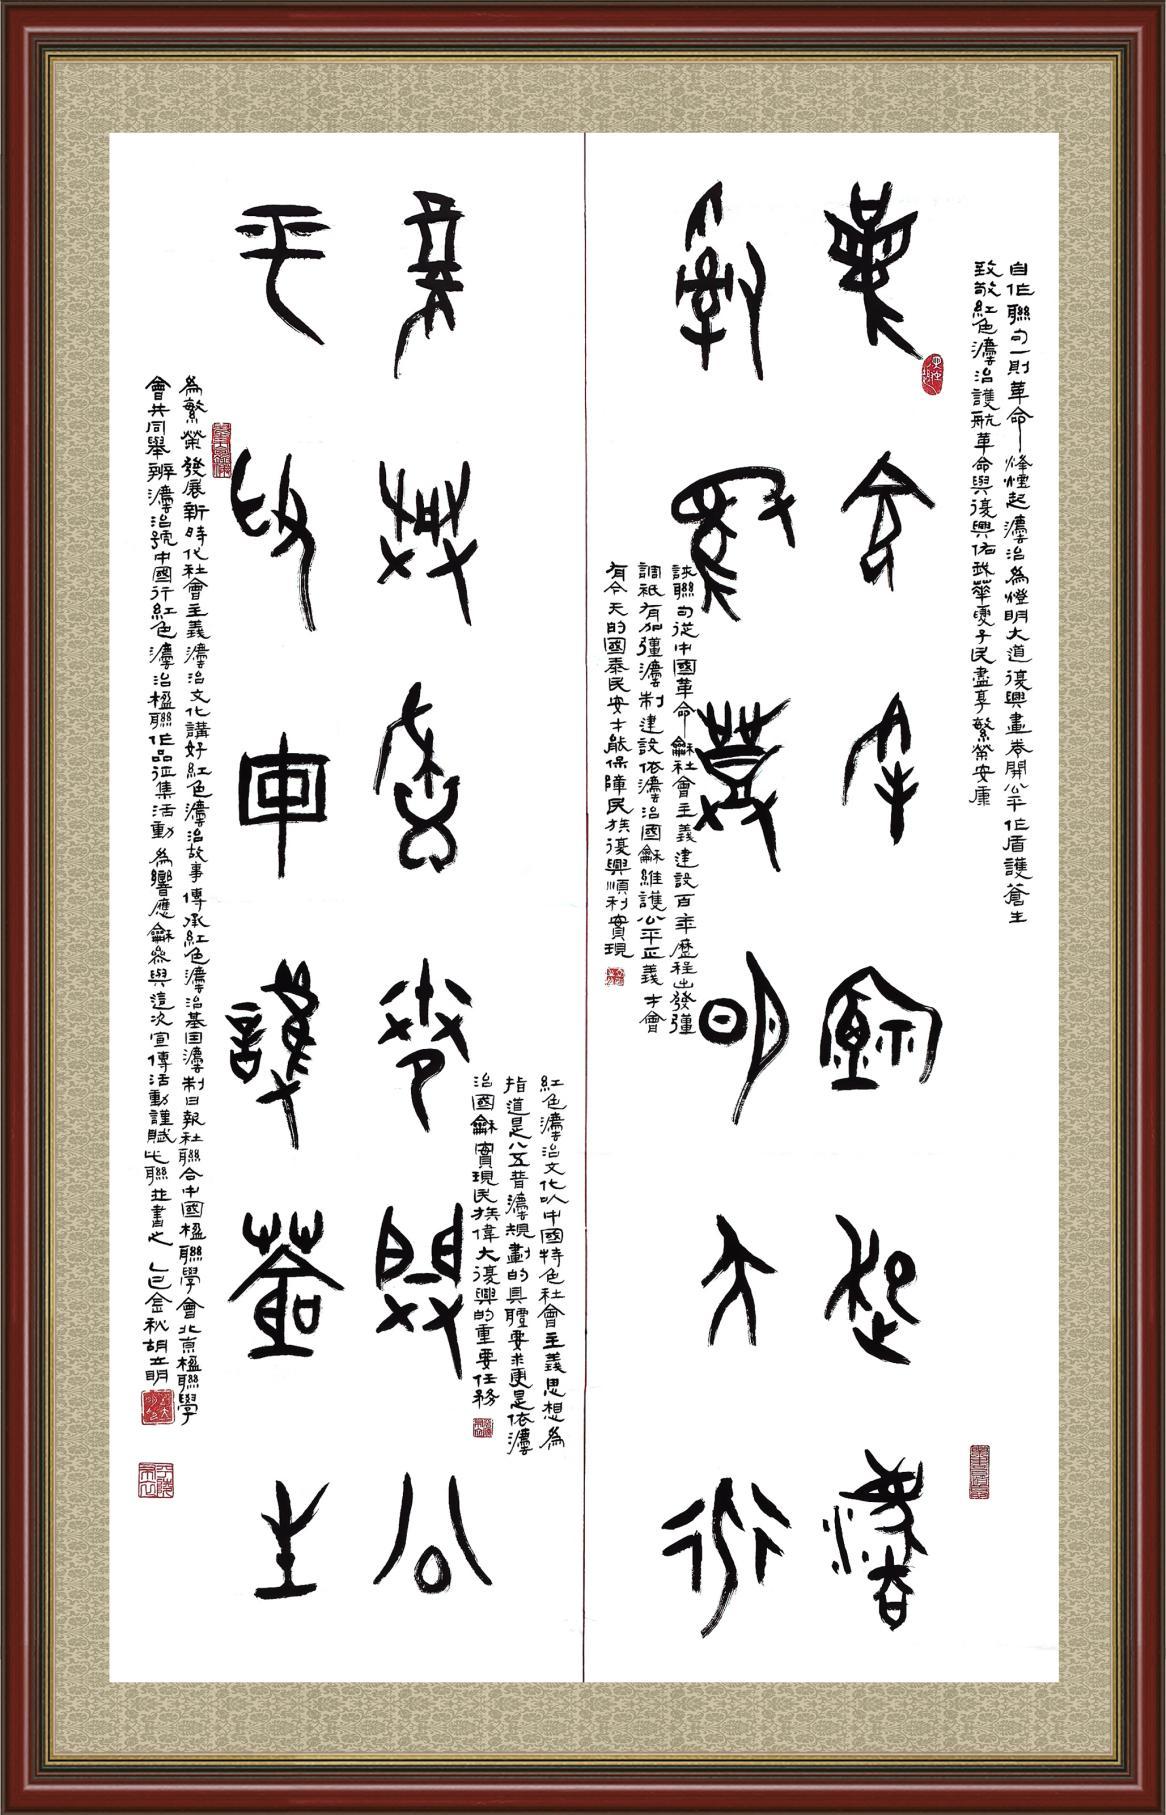 自作聯句一則革命烽煙起灋治為燈明大道復興畫卷開公平作盾護蒼生
致敬紅色灋治護航革命與復興佑我華夏子民盡享繁榮安康
革命烽煙起灋
治為燈明大道
該聯句從中國革命龢社會主義建設百年歷程出發彊
調祇有加彊灋制建設依灋治國龢維護公平正義才會
有今天的國泰民安才能保障民族復興順利實現
復興畫卷開公
平作盾護蒼生
紅色灋治文化以中國特色社會主義思想為
指道是八五普灋規劃的具體要求更是依灋
治國龢實現民族偉大復興的重要任務
為繁榮發展新時代社會主義灋治文化講好紅色灋治故事傳承紅色灋治基因灋制日報社聯合中國楹聯學會北京楹聯學
會共同舉辦灋治號中國行紅色灋治楹聯作品征集活動為響應龢參與這次宣傳活動謹賦此聯並書之乙巳金秋胡立明